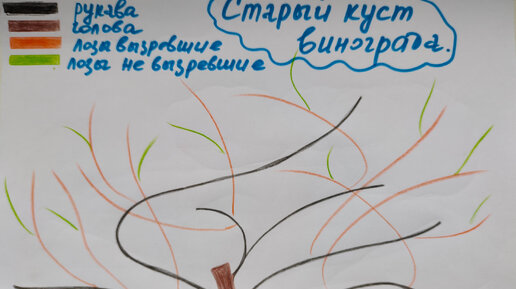 рукава
голова
лоза вызревшие
лозы не вызревшие
Старый куст
винограда.